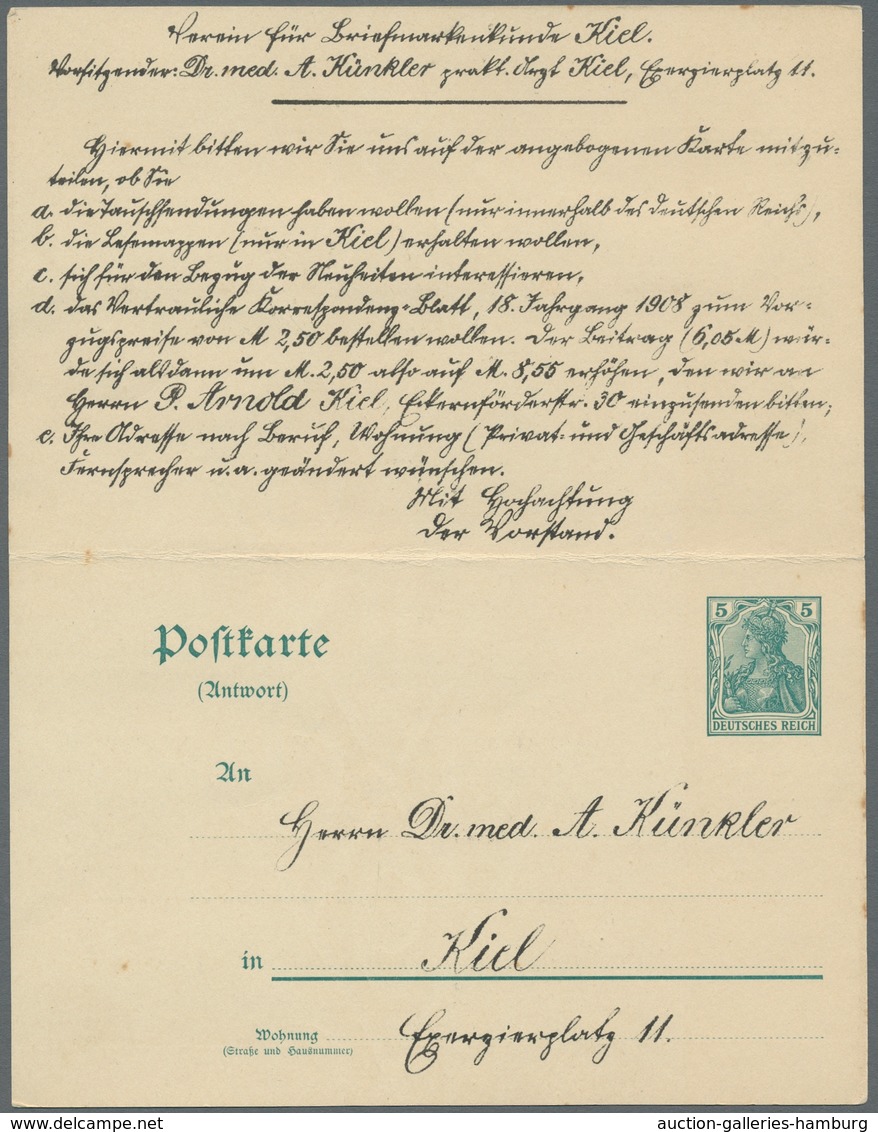 Verein für Briefmarkenkunde Kiel.
Vorsitzender: Dr. med. A. Künkler prakt. Arzt Kiel, Exerzierplatz 11.
Hiermit bitten wir Sie uns auf der angebogenen Karte mitzu-
teilen, ob Sie
a. die Tauschsendungen haben wollen (nur innerhalb des Deutschen Reichs),
b. die Lesemappen (nur in Kiel) erhalten wollen,
c. sich für den Bezug der Neuheiten interessieren,
d. das Vertrauliche Korrespondenz-Blatt, 18. Jahrgang 1908 zum Vor-
zugspreise von M 2,50 bestellen wollen. Der Beitrag (6,05 M) wür-
de sich alsdann um M. 2,50 also auf M. 8,55 erhöhen, den wir an
Herrn P. Arnold Kiel, Eckernförderstr. 30 einzusenden bitten,
e. Ihre Adresse nach Beruf, Wohnung (Privat- und Geschäftsadresse),
Fernsprecher u. a. geändert wünschen.
Mit Hochachtung
Der Vorstand.
Postkarte
(Antwort)
5 5
DEUTSCHES REICH
An
Herrn Dr. med. A. Künkler
in Kiel
Wohnung Exerzierplatz 11.
(Straße und Hausnummer)
auction-galleries-hamburg